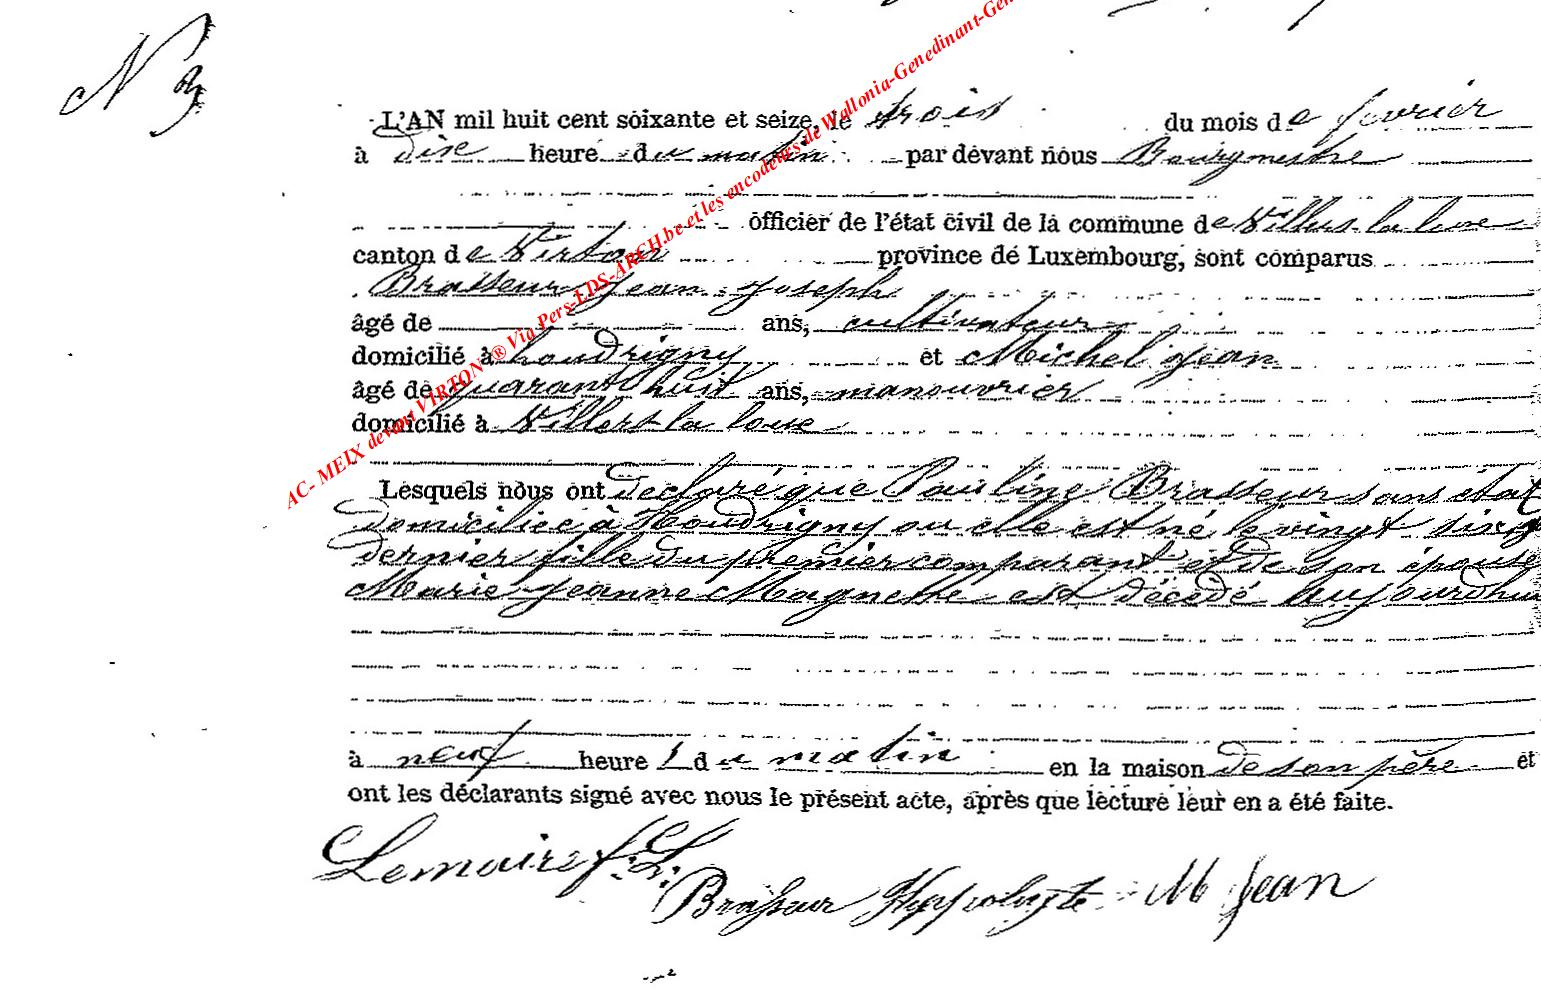 N 3
L'AN mil huit cent soixante et seize, le trois du mois de fevrier
à dix heure du matin par devant nous Bourgmestre
officier de l'état civil de la commune de Villers-la-loue
canton de Virton province de Luxembourg, sont comparus
Brasseur Jean Joseph
âgé de ans, cultivateur
domicilié à houdrigny et Michel Jean
âgé de quarante huit ans, manouvrier
domicilié à Villers-la-loue
Lesquels nous ont declaré que Pauline Brasseur sans état
domiciliée à Houdrigny ou elle est né le vingt six
dernier fille du premier comparant et de son épouse
Marie-Jeanne Magnette est décédé aujourdhui
à neuf heure du matin en la maison de son père et
ont les déclarants signé avec nous le présent acte, après que lecture leur en a été faite.
Lemaire f. L.
Brasseur Hyppolyte M Jean
AC- MEIX devant VIRTON ® Via Pers-LDS-ARCH.be et les encodeurs de Wallonia-Genedinant-Gen